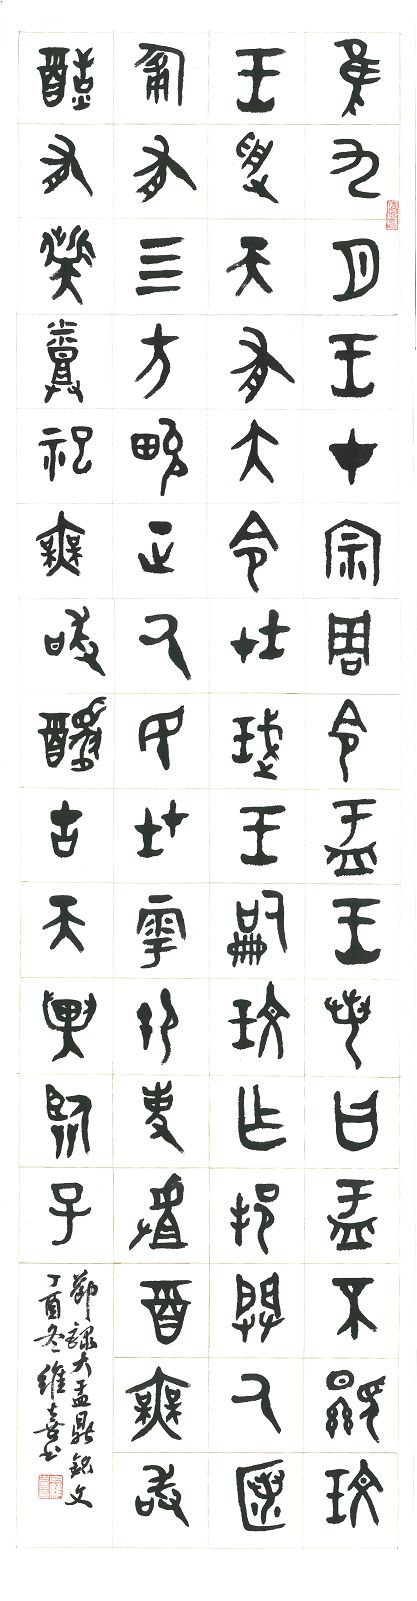 隹九月王才宗周令盂王若曰盂不顯玟
王受天有大令在珷王嗣玟乍邦闢厥匿
匍有四方畯正厥民在雩御事䖒酉無敢
酖有祡烝祀無敢醻古天異臨子
節錄大盂鼎銘文
丁酉冬維喜書